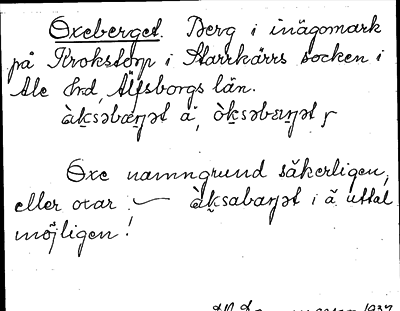 Oxeberget. Berg i inägomark
på Krokstorp i Starrkärrs socken i
Ale hd, Älfsborgs län.
àk̯səbæn̥ət ä, òk̯səbæn̥ət
Oxe namngrund säkerligen,
eller oxar :~ àk̯sabaŋət i ä uttal
möjligen!
1937